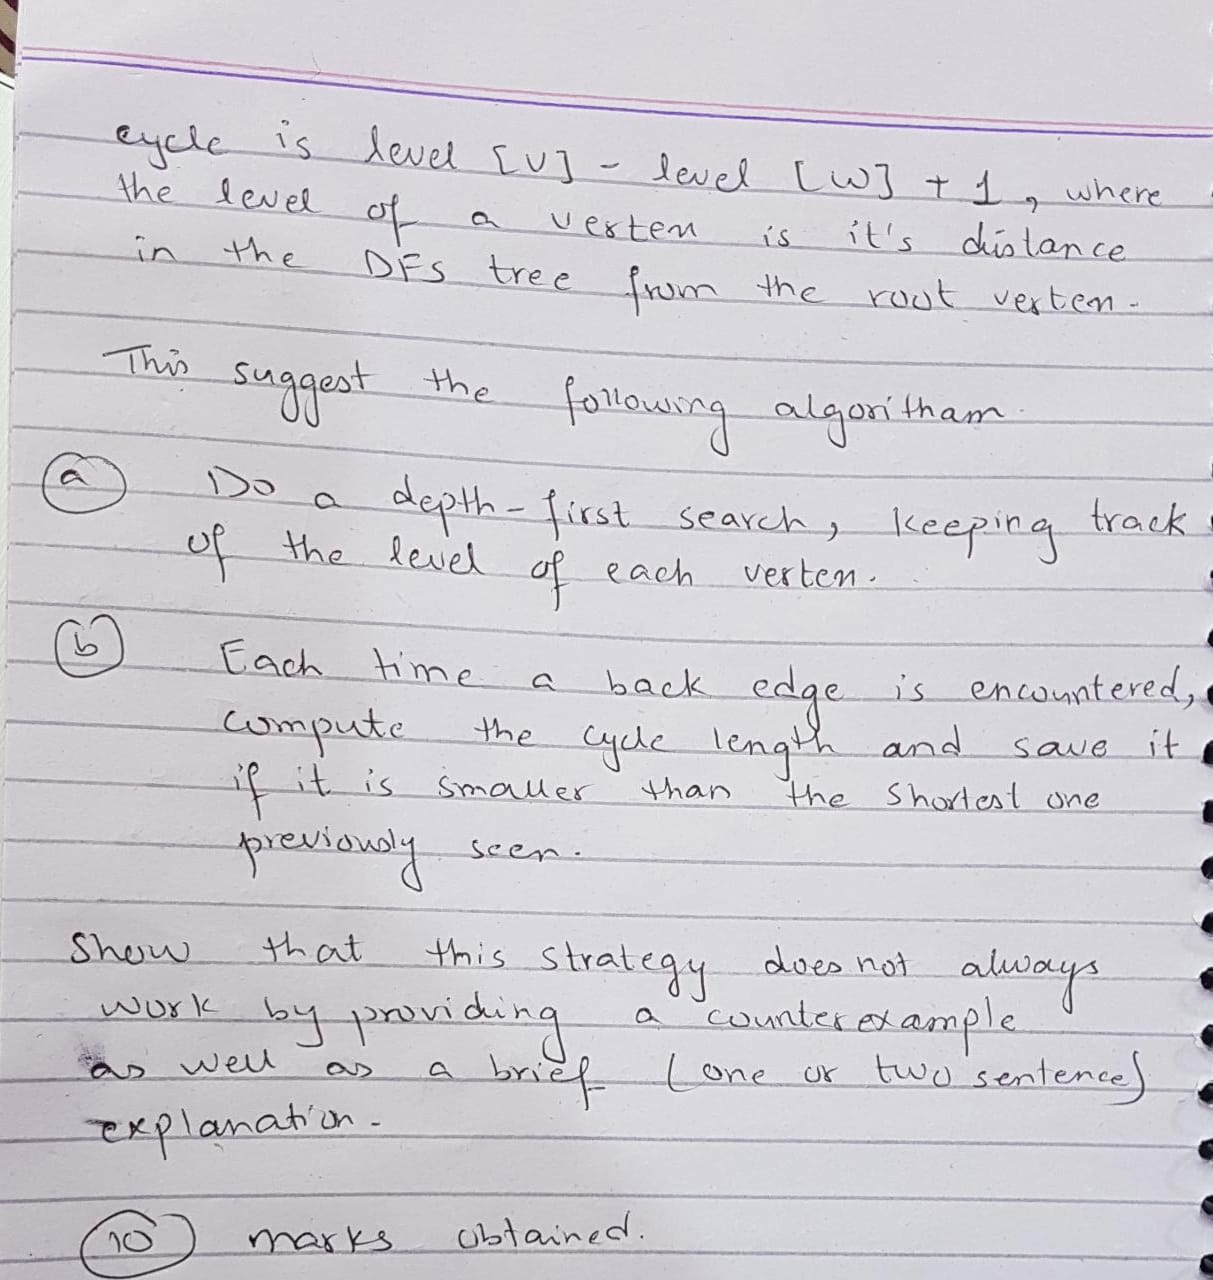 cycle is level [v] - level [w] + 1, where
the level of a verten is it's distance
in the DFS tree from the root verten.
This suggest the following algoritham.
(a) Do a depth-first search, keeping track
of the level of each verten.
(b) Each time a back edge is encountered,
compute the cycle length and save it
if it is smaller than the shortest one
previously seen.
Show that this strategy does not always
work by providing a counterexample
as well as a brief (one or two sentence)
explanation.
(10) marks obtained.